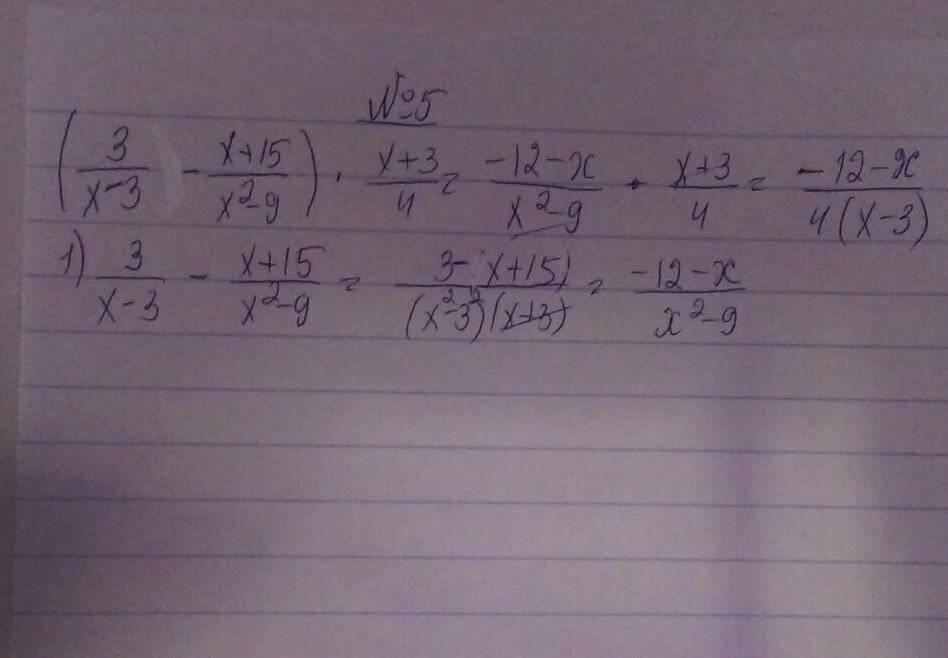 №5
(3/(x-3) - (x+15)/(x²-9)) · (x+3)/4 = (-12-x)/(x²-9) · (x+3)/4 = (-12-x)/(4(x-3))
1) 3/(x-3) - (x+15)/(x²-9) = (3-(x+15))/((x²-3²)(x+3)) = (-12-x)/(x²-9)